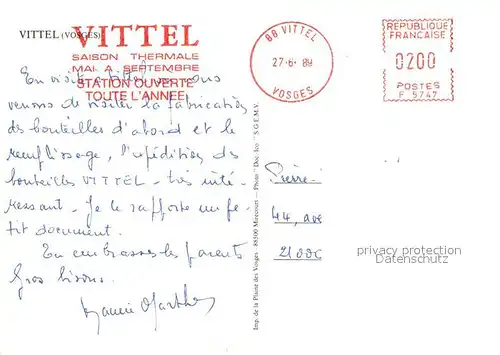 VITTEL (VOSGES)
VITTEL
SAISON THERMALE
MAI A SEPTEMBRE
STATION OUVERTE
TOUTE L'ANNEE
88 VITTEL
27-6-89
VOSGES
REPUBLIQUE
FRANCAISE
0200
POSTES
F 5747
En visite Vittel nous
venons de visiter la fabrication
des bouteilles d'abord et le
remplissage, l'expédition des
bouteilles VITTEL - très inté-
ressant - Je te rapporte un pe-
tit document.
En embrasses les parents
Gros bisous.
Imp. de la Plaine des Vosges - 88500 Mirecourt - Photo "Doc-Ico" S.G.E.M.V.
Pierre
44, ave
21000
privacy protection
Datenschutz